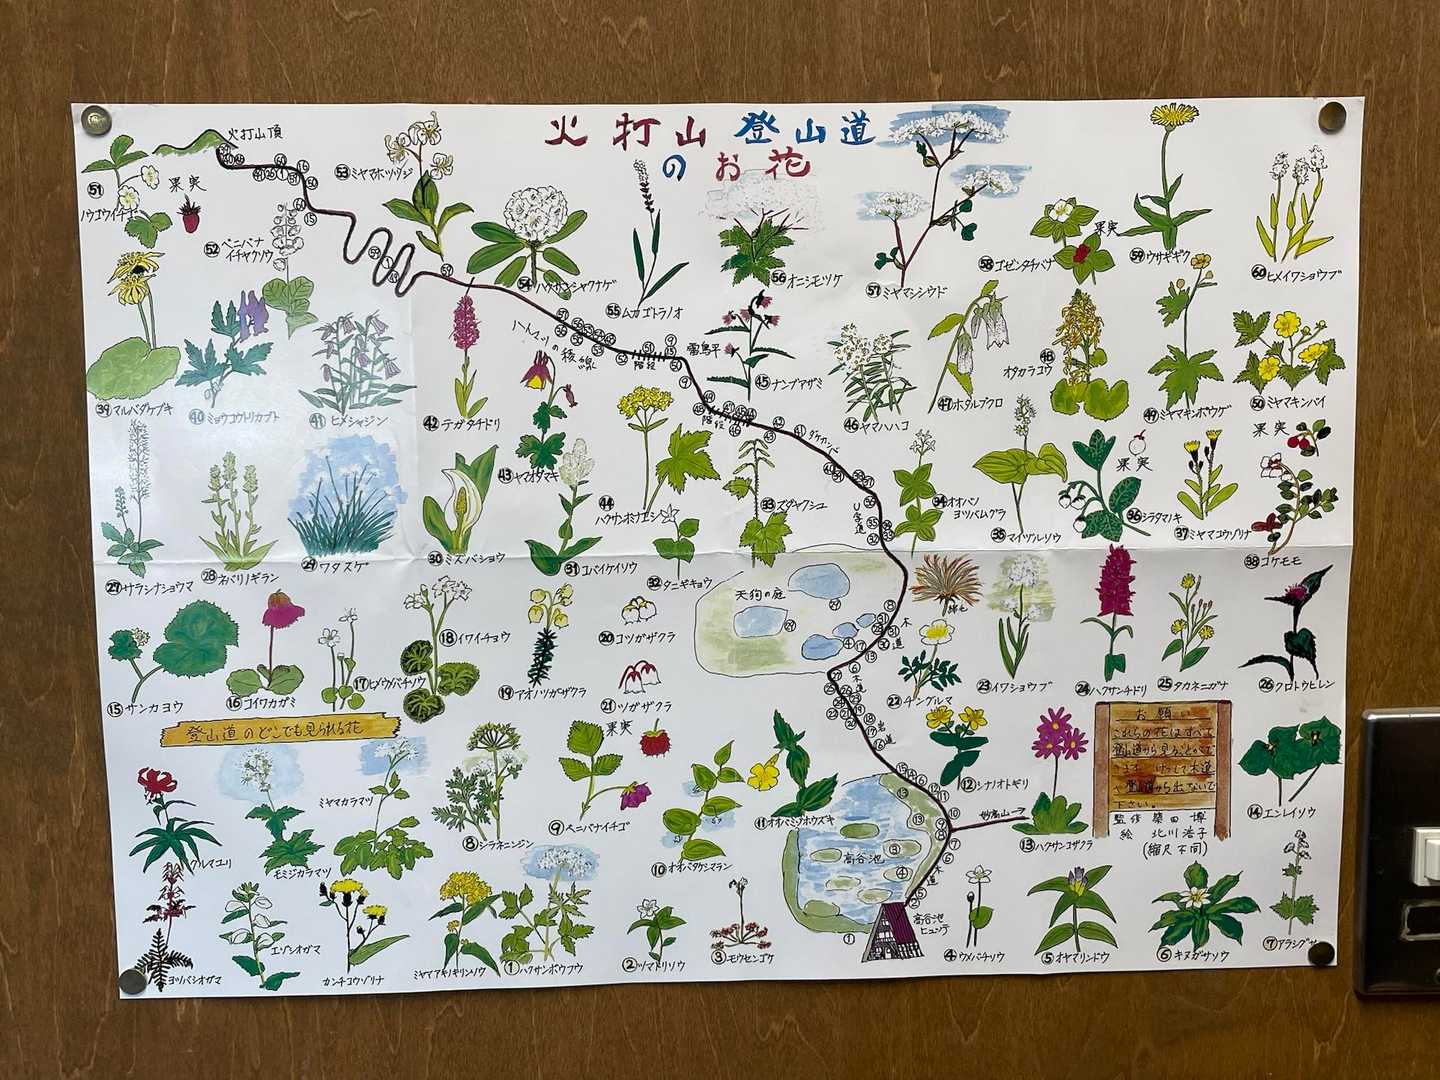 火打山 登山道
のお花
火打山頂
果実
51 ハクサンイチゲ
52 ベニバナ
イチヤクソウ
53 ミヤマホツツジ
54 ハクサンシャクナゲ
55 ムカゴトラノオ
56 オニシモツケ
57 ミヤマシシウド
58 ゴゼンタチバナ
果実
59 ウサギギク
60 ヒメイワショウブ
39 マルバダケブキ
40 ミョウコウトリカブト
41 ヒメシャジン
42 テガタチドリ
43 ヤマオダマキ
44 ハクサンオミナエシ
階段
雷鳥平
45 ナンブアザミ
階段
46 ヤマハハコ
47 ホタルブクロ
48
オタカラコウ
49 ミヤマキンポウゲ
50 ミヤマキンバイ
27 サラシナショウマ
28 ネバリノギラン
29 ワタスゲ
30 ミズバショウ
31 コバイケイソウ
32 タニギキョウ
33 ズダヤクシュ
34 オオバノ
ヨツバムグラ
35 マイヅルソウ
果実
36 シラタマノキ
37 ミヤマコウゾリナ
果実
38 コケモモ
15 サンカヨウ
16 コイワカガミ
17 ヒメウメバチソウ
18 イワイチョウ
19 アオノツガザクラ
20 コツガザクラ
21 ツガザクラ
天狗の庭
木道
22 チングルマ
23 イワショウブ
24 ハクサンチドリ
25 タカネニガナ
26 クロトウヒレン
登山道のどこでも見られる花
クルマユリ
モミジカラマツ
ミヤマカラマツ
8 シラネニンジン
果実
9 ベニバナイチゴ
10 オオバタケシマラン
11 オオバミゾホオズキ
12 シナノオトギリ
妙高山→
13 ハクサンコザクラ
お願い
これらの花はすべて
登山道から見ることができ
ます。けっして木道
や登山道から出ないで
下さい。
監修 築田 博
絵 北川 浩子
(縮尺不同)
14 エンレイソウ
ヨツバシオガマ
エゾシオガマ
カンチコウゾリナ
ミヤマアキノキリンソウ
1 ハクサンボウフウ
2 ツマトリソウ
3 モウセンゴケ
高谷池
木道
高谷池
ヒュッテ
4 ウメバチソウ
5 オヤマリンドウ
6 キヌガサソウ
7 アラシグサ